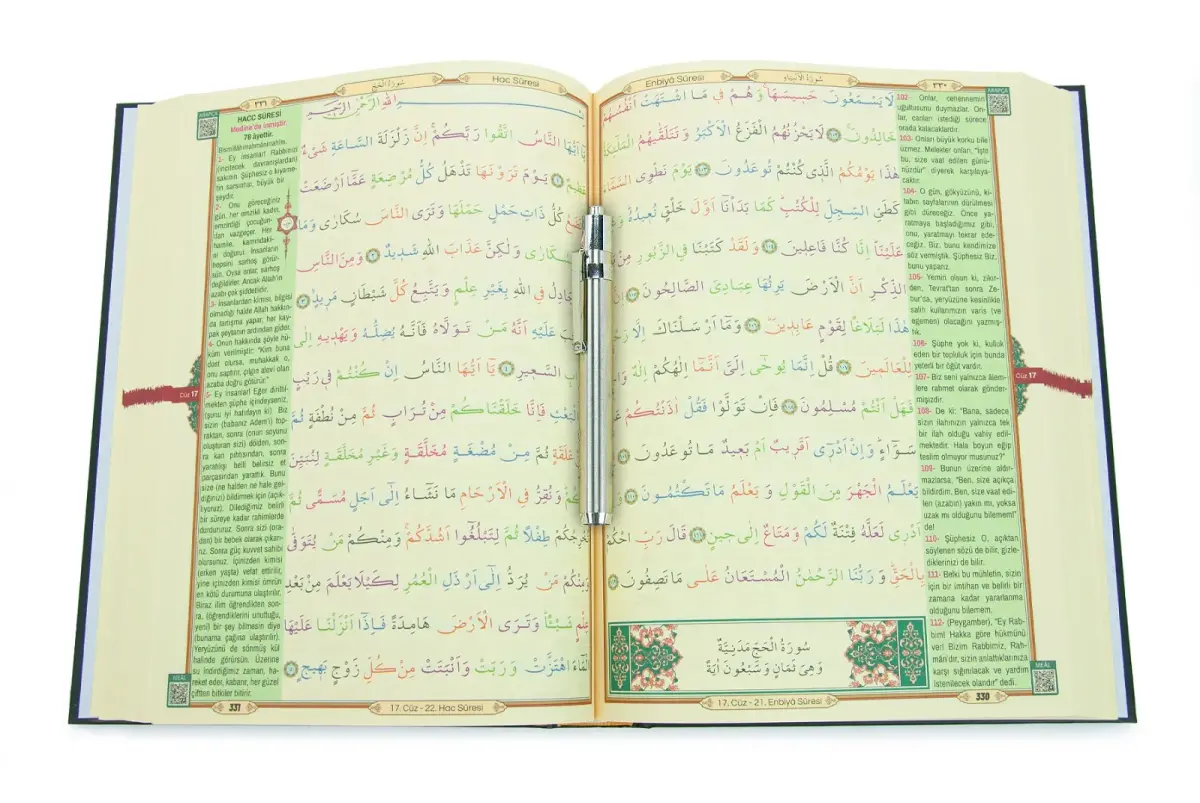 Enbiyâ Sûresi
سُورَةُ الْاَنْبِيَاءِ
٣٣٠
لَا يَسْمَعُونَ حَسِيسَهَاۚ وَهُمْ فِي مَا اشْتَهَتْ اَنْفُسُهُمْ
خَالِدُونَۚ ﴿١٠٢﴾ لَا يَحْزُنُهُمُ الْفَزَعُ الْاَكْبَرُ وَتَتَلَقّٰيهُمُ الْمَلٰٓئِكَةُ
هٰذَا يَوْمُكُمُ الَّذ۪ي كُنْتُمْ تُوعَدُونَ ﴿١٠٣﴾ يَوْمَ نَطْوِي السَّمَٓاءَ
كَطَيِّ السِّجِلِّ لِلْكُتُبِۜ كَمَا بَدَأْنَٓا اَوَّلَ خَلْقٍ نُع۪يدُهُۜ
عَلَيْنَاۜ اِنَّا كُنَّا فَاعِل۪ينَ ﴿١٠٤﴾ وَلَقَدْ كَتَبْنَا فِي الزَّبُورِ مِنْ
الذِّكْرِ اَنَّ الْاَرْضَ يَرِثُهَا عِبَادِيَ الصَّالِحُونَ ﴿١٠٥﴾
هٰذَا لَبَلَاغًا لِقَوْمٍ عَابِد۪ينَۜ ﴿١٠٦﴾ وَمَٓا اَرْسَلْنَاكَ اِلَّا
لِلْعَالَم۪ينَ ﴿١٠٧﴾ قُلْ اِنَّمَا يُوحٰٓى اِلَيَّ اَنَّمَٓا اِلٰهُكُمْ اِلٰهٌ
فَهَلْ اَنْتُمْ مُسْلِمُونَ ﴿١٠٨﴾ فَاِنْ تَوَلَّوْا فَقُلْ اٰذَنْتُكُمْ
سَوَٓاءٍۜ وَاِنْ اَدْر۪ٓي اَقَر۪يبٌ اَمْ بَع۪يدٌ مَا تُوعَدُونَ ﴿١٠٩﴾
يَعْلَمُ الْجَهْرَ مِنَ الْقَوْلِ وَيَعْلَمُ مَا تَكْتُمُونَ ﴿١١٠﴾
اَدْر۪ي لَعَلَّهُ فِتْنَةٌ لَكُمْ وَمَتَاعٌ اِلٰى ح۪ينٍ ﴿١١١﴾ قَالَ رَبِّ احْكُمْ
بِالْحَقِّۜ وَرَبُّنَا الرَّحْمٰنُ الْمُسْتَعَانُ عَلٰى مَا تَصِفُونَ ﴿١١٢﴾
سُورَةُ الْحَجِّ مَدَنِيَّةٌ
وَهِيَ ثَمَانٍ وَسَبْعُونَ اٰيَةً
102- Onlar, cehennemin
uğultusunu duymazlar. On-
lar, canları istediği sürece
orada kalacaklardır.
103- Onları büyük korku bile
üzmez. Melekler onları, "İşte
bu, size vaat edilen günü-
nüzdür" diyerek karşılaya-
caktır.
104- O gün, gökyüzünü, ki-
tabın sayfalarının dürülmesi
gibi düreceğiz. Önce ya-
ratmaya başladığımız gibi,
onu, yaratmayı tekrar ede-
ceğiz. Biz, bunu kendimize
söz vermiştik. Şüphesiz Biz,
bunu yaparız.
105- Yemin olsun ki, zikir-
den, Tevrat'tan sonra Ze-
bur'da, yeryüzüne kesinlikle
salih kullarımızın varis (ve
egemen) olacağını yazmış-
tık.
106- Şüphe yok ki, kulluk
eden bir topluluk için bunda
yeterli bir öğüt vardır.
107- Biz seni yalnızca âlem-
lere rahmet olarak gönder-
mişizdir.
108- De ki: "Bana, sadece
sizin ilahınızın yalnızca tek
bir ilah olduğu vahiy edil-
mektedir. Hala boyun eğip
teslim olmuyor musunuz?"
109- Bunun üzerine aldır-
mazlarsa, "Ben, size açıkça
bildirdim. Ben, size vaat edi-
len (azabın) yakın mı, yoksa
uzak mı olduğunu bilemem!"
de!
110- Şüphesiz O, açıktan
söylenen sözü de bilir, gizle-
diklerinizi de bilir.
111- Belki bu mühletin, sizin
için bir imtihan ve belirli bir
zamana kadar yararlanma
olduğunu bilemem.
112- (Peygamber), "Ey Rab-
bim! Hakka göre hükmünü
ver! Bizim Rabbimiz, Rah-
mân'dır, sizin anlattıklarınıza
karşı sığınılacak ve yardım
istenilecek olandır" dedi.
Cüz 17
MEÂL
17. Cüz - 21. Enbiyâ Sûresi
330
Hac Sûresi
سُورَةُ الْحَجِّ
٣٣١
اللّٰهِ الرَّحْمٰنِ الرَّح۪يمِ
يَٓا اَيُّهَا النَّاسُ اتَّقُوا رَبَّكُمْۚ اِنَّ زَلْزَلَةَ السَّاعَةِ شَيْءٌ
عَظ۪يمٌ ﴿١﴾ يَوْمَ تَرَوْنَهَا تَذْهَلُ كُلُّ مُرْضِعَةٍ عَمَّٓا اَرْضَعَتْ
وَتَضَعُ كُلُّ ذَاتِ حَمْلٍ حَمْلَهَا وَتَرَى النَّاسَ سُكَارٰى وَمَا
بِسُكَارٰى وَلٰكِنَّ عَذَابَ اللّٰهِ شَد۪يدٌ ﴿٢﴾ وَمِنَ النَّاسِ
يُجَادِلُ فِي اللّٰهِ بِغَيْرِ عِلْمٍ وَيَتَّبِعُ كُلَّ شَيْطَانٍ مَر۪يدٍۙ ﴿٣﴾
عَلَيْهِ اَنَّهُ مَنْ تَوَلَّاهُ فَاَنَّهُ يُضِلُّهُ وَيَهْد۪يهِ اِلٰى
السَّع۪يرِ ﴿٤﴾ يَٓا اَيُّهَا النَّاسُ اِنْ كُنْتُمْ ف۪ي رَيْبٍ
الْبَعْثِ فَاِنَّا خَلَقْنَاكُمْ مِنْ تُرَابٍ ثُمَّ مِنْ نُطْفَةٍ ثُمَّ
عَلَقَةٍ ثُمَّ مِنْ مُضْغَةٍ مُخَلَّقَةٍ وَغَيْرِ مُخَلَّقَةٍ لِنُبَيِّنَ
وَنُقِرُّ فِي الْاَرْحَامِ مَا نَشَٓاءُ اِلٰٓى اَجَلٍ مُسَمًّى ثُمَّ
نُخْرِجُكُمْ طِفْلًا ثُمَّ لِتَبْلُغُٓوا اَشُدَّكُمْۚ وَمِنْكُمْ مَنْ يُتَوَفّٰى
وَمِنْكُمْ مَنْ يُرَدُّ اِلٰٓى اَرْذَلِ الْعُمُرِ لِكَيْلَا يَعْلَمَ مِنْ بَعْدِ
عِلْمٍ شَيْـًٔاۜ وَتَرَى الْاَرْضَ هَامِدَةً فَاِذَٓا اَنْزَلْنَا عَلَيْهَا
الْمَٓاءَ اهْتَزَّتْ وَرَبَتْ وَاَنْبَتَتْ مِنْ كُلِّ زَوْجٍ بَه۪يجٍ ﴿٥﴾
HACC SÛRESİ
Medine'de inmiştir.
78 âyettir.
Bismillâhirrahmânirrahîm.
1- Ey insanlar! Rabbinizi
(incitecek davranışlardan)
sakının. Şüphesiz o kıyame-
tin sarsıntısı, büyük bir
şeydir.
2- Onu göreceğiniz
gün, her emzikli kadın,
emzirdiği çocuğun-
dan vazgeçer. Her
hamile, karnındaki-
ni doğurur. İnsanların
hepsini sarhoş görür-
sün. Oysa onlar, sarhoş
değildirler. Ancak Allah'ın
azabı çok şiddetlidir.
3- İnsanlardan kimisi, bilgisi
olmadığı halde Allah hakkın-
da tartışma yapar, her kay-
pak şeytanın ardından gider.
4- Onun hakkında şöyle hü-
küm verilmiştir: "Kim bunu
dost olursa, muhakkak o,
onu saptırır, çılgın alevi olan
azaba doğru götürür."
5- Ey insanlar! Eğer diril-
mekten şüphe içindeyseniz,
(şunu iyi hatırlayın ki): Biz
sizin (babanız Adem'i) top-
raktan, sonra (onun soyunu
oluşturan sizi) dölden, son-
ra kan pıhtısından, sonra
yaratılışı belli belirsiz et
parçasından yarattık. Bunu
size (ne halden ne hale gel-
diğinizi) bildirmek için (açık-
lıyoruz). Dilediğimizi belirli
bir süreye kadar rahimlerde
durdururuz. Sonra sizi (ora-
dan) bir bebek olarak çıkarı-
rız. Sonra güç kuvvet sahibi
olursunuz. İçinizden kimisi
(erken yaşta) vefat ettirilir,
yine içinizden kimisi ömrün
en kötü durumuna ulaştırılır.
Biraz ilim öğrendikten son-
ra, (öğrendiklerini unuttuğu,
yeni) bir şey bilmesin diye
(bunama çağına ulaştırılır).
Yeryüzünü de sönmüş kül
halinde görürsün. Üzerine
su indirdiğimiz zaman, ha-
reket eder, kabarır, her güzel
çiftten bitkiler bitirir.
Cüz 17
MEÂL
331
17. Cüz - 22. Hac Sûresi